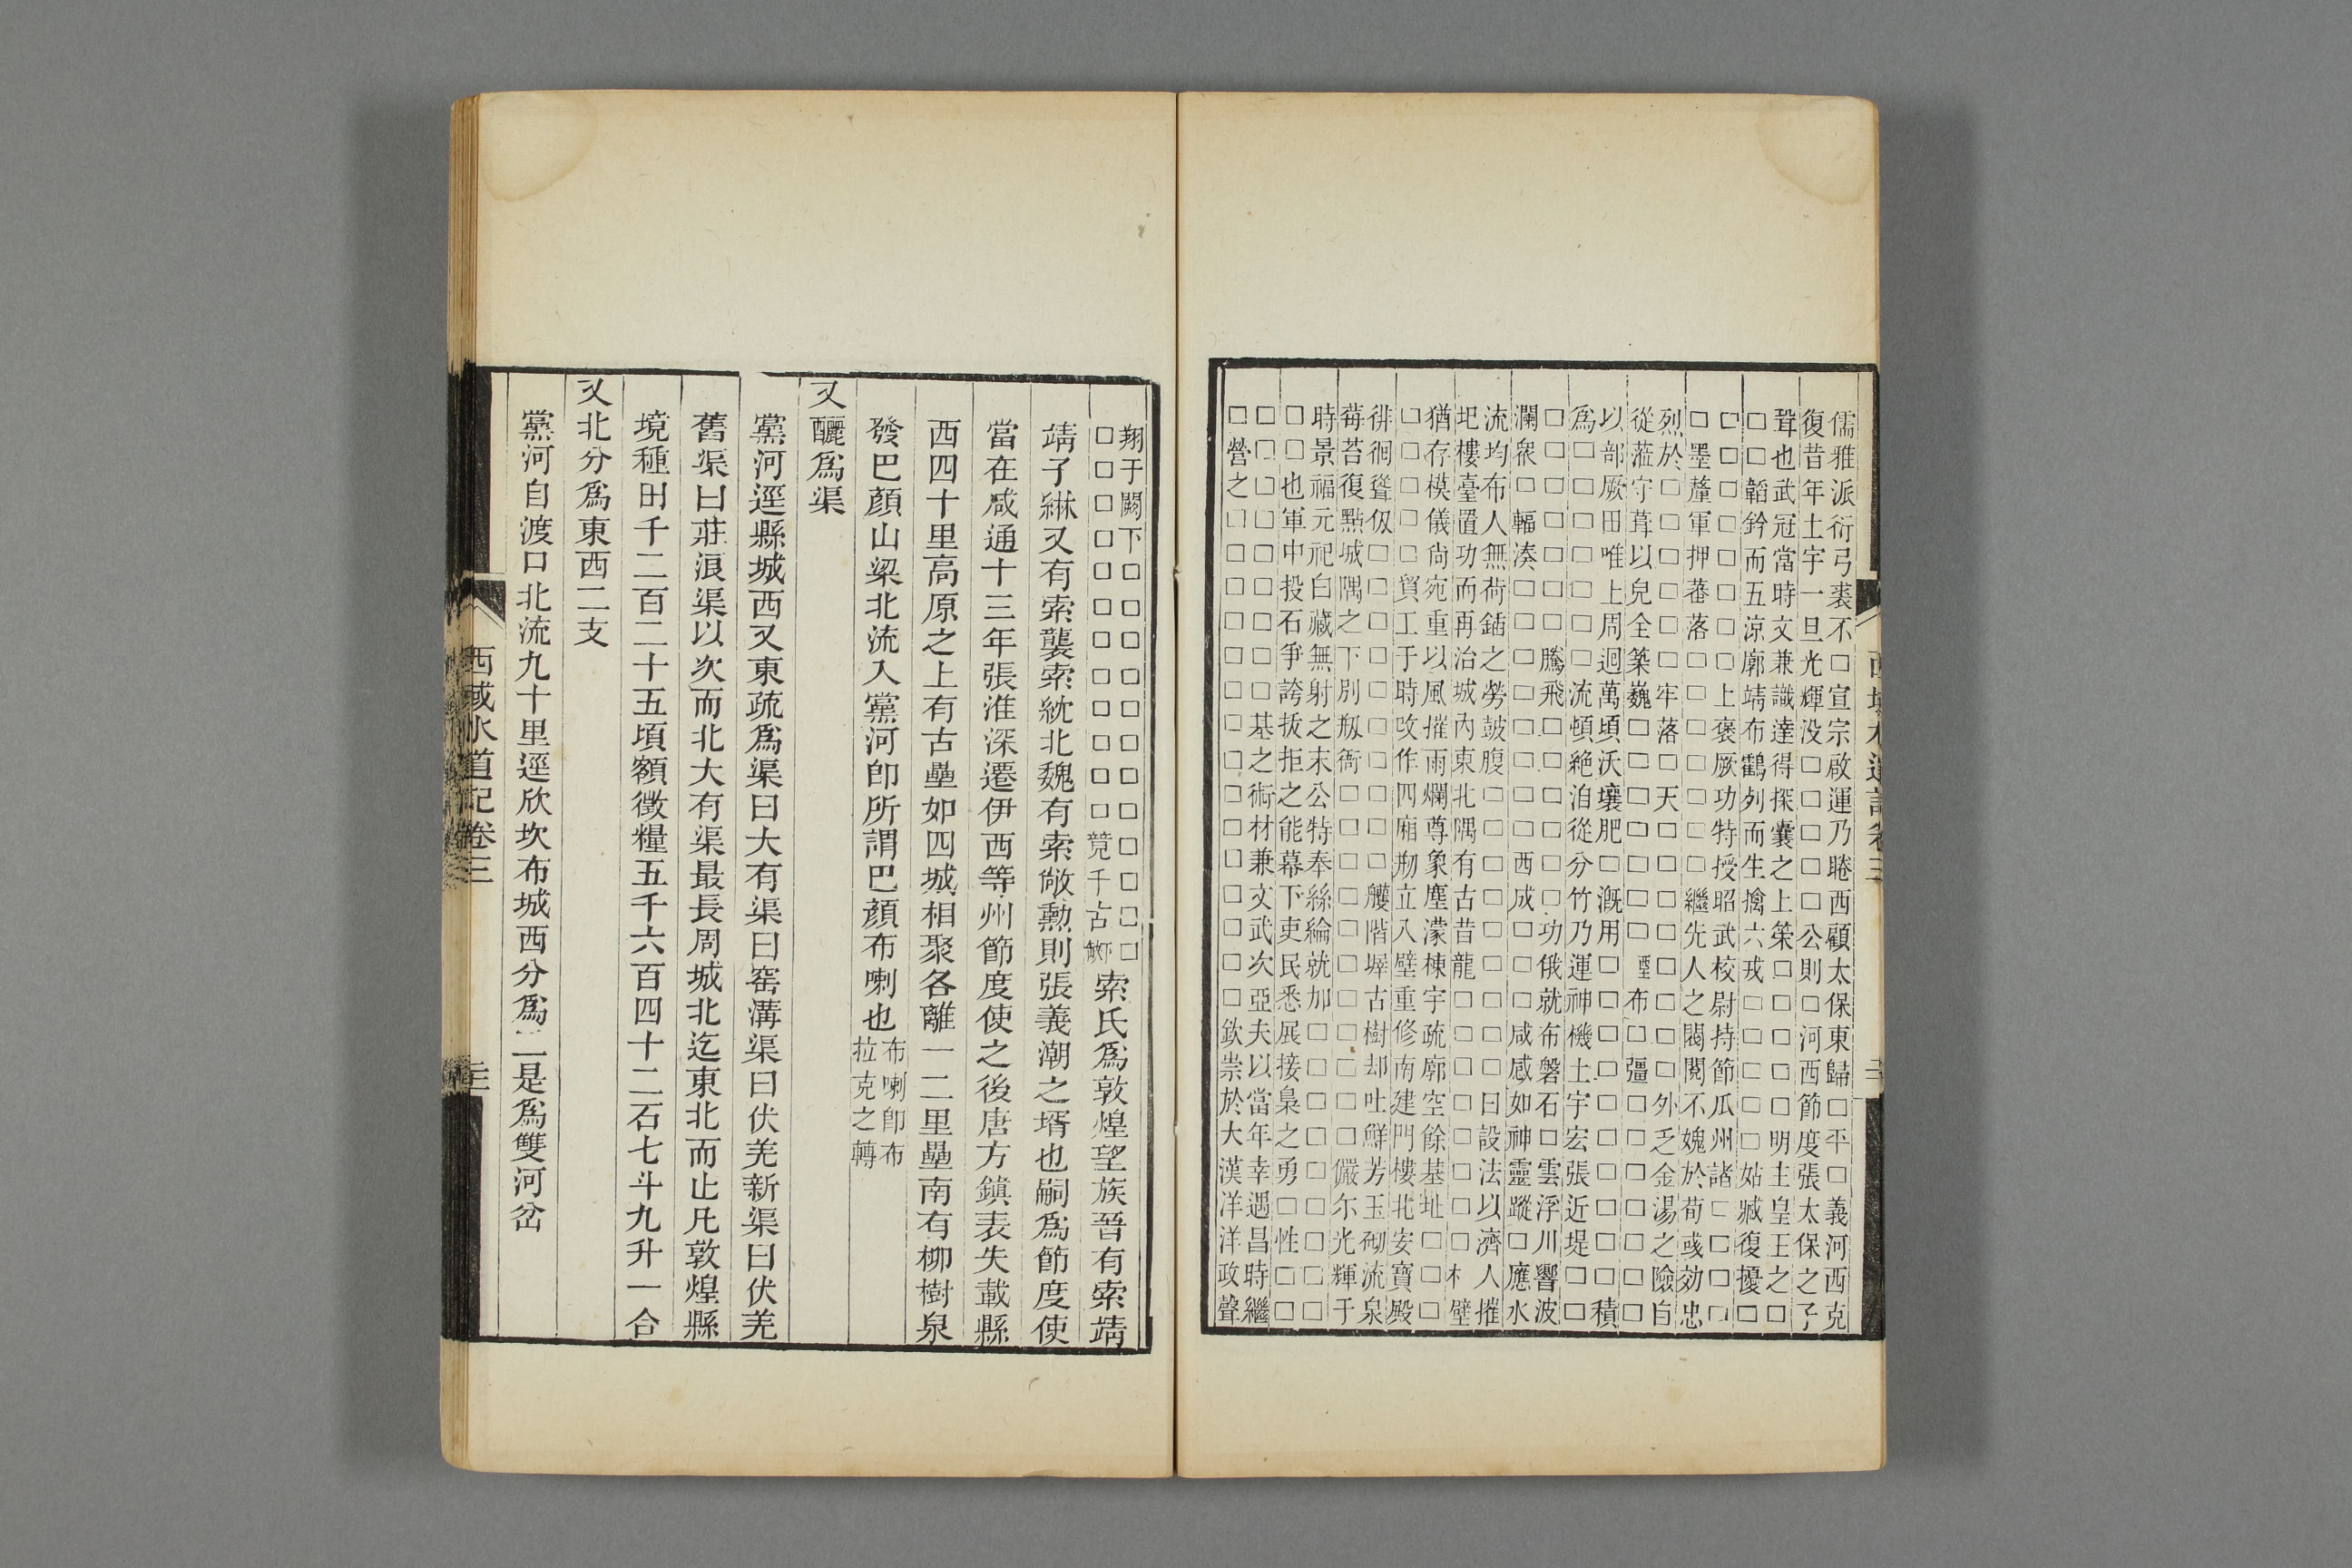 儒雅派衍弓裘不□宣宗啟運乃睠西顧太保東歸□平□義河西克
復昔年土宇一旦光輝没□□□□公則□河西節度張太保之子
聲也武冠當時文兼識達得探囊之上策□□□□明主皇王之□
□□韜鈐而五涼廓靖布鸛列而生擒六戎□□□□□姑臧復擾□
□□□□□□□□上褒厥功特授昭武校尉持節瓜州諸□□□□
□墨釐軍押蕃落□□□□□□□繼先人之閥閱不媿於荀彧効忠
烈於□□□□□□牢落□天□□□□□□□□外乏金湯之險自
從蒞守葺以兒全築巍□□□□□□□堊布□疆□□□□□□□
以部厥田唯上周迴萬頃沃壤肥□溉用□□□□□□□□□□積
爲□□□□□□□流頓絕洎從分竹乃運神機土宇宏張近堤□□
□□□□□□□騰飛□□□□□□□功俄就布磐石□雲浮川響波
瀾衆□輻湊□□□□□□□□西成□□□咸感如神靈蹤□應水
流均布人無荷鍤之勞鼓腹□□□□□□□□曰設法以濟人摧
圯樓臺置功而再治城內東北隅有古昔龍□□□□□□□□木壁
猶存模儀尙宛重以風摧雨爛尊象塵濛棟宇疏廓空餘基址□□□
□□□□□貿工于時改作四廂刱立八壁重修南建門樓北安寶殿
徘徊聳仭□□□□□□□□□□艧階墀古樹却吐鮮芳玉砌流泉
莓苔復點城隅之下別刱衙□□□□□□□□□□儼尓光輝于
時景福元祀白藏無射之末公特奉絲綸就加□□□□□□□□□
□□也軍中投石爭誇扳拒之能幕下吏民悉展接梟之勇□性□□
□□□□□□□□□基之術材兼文武次亞夫以當年幸遇昌時繼
□營之□□□□□□□□□□□□□□□欽祟於大漢洋洋政聲
西域水道記卷三
翔于闕下□□□□□□□□□□□□
□□□□□□□□□□□□竟千古
索氏爲敦煌望族晉有索靖
靖子綝又有索襲索統北魏有索敞勲則張義潮之壻也嗣爲節度使
當在咸通十三年張淮深遷伊西等州節度使之後唐方鎭表失載縣
西四十里高原之上有古壘如四城相聚各離一二里壘南有柳樹泉
發巴顏山梁北流入黨河卽所謂巴顏布喇也
布喇卽布
拉克之轉
又釃爲渠
黨河逕縣城西又東疏爲渠曰大有渠曰窑溝渠曰伏羌新渠曰伏羌
舊渠曰莊浪渠以次而北大有渠最長周城北迄東北而止凡敦煌縣
境種田千二百二十五頃額徵糧五千六百四十二石七斗九升一合
又北分爲東西二支
黨河自渡口北流九十里逕欣坎布城西分爲二是爲雙河岔
西域水道記卷三